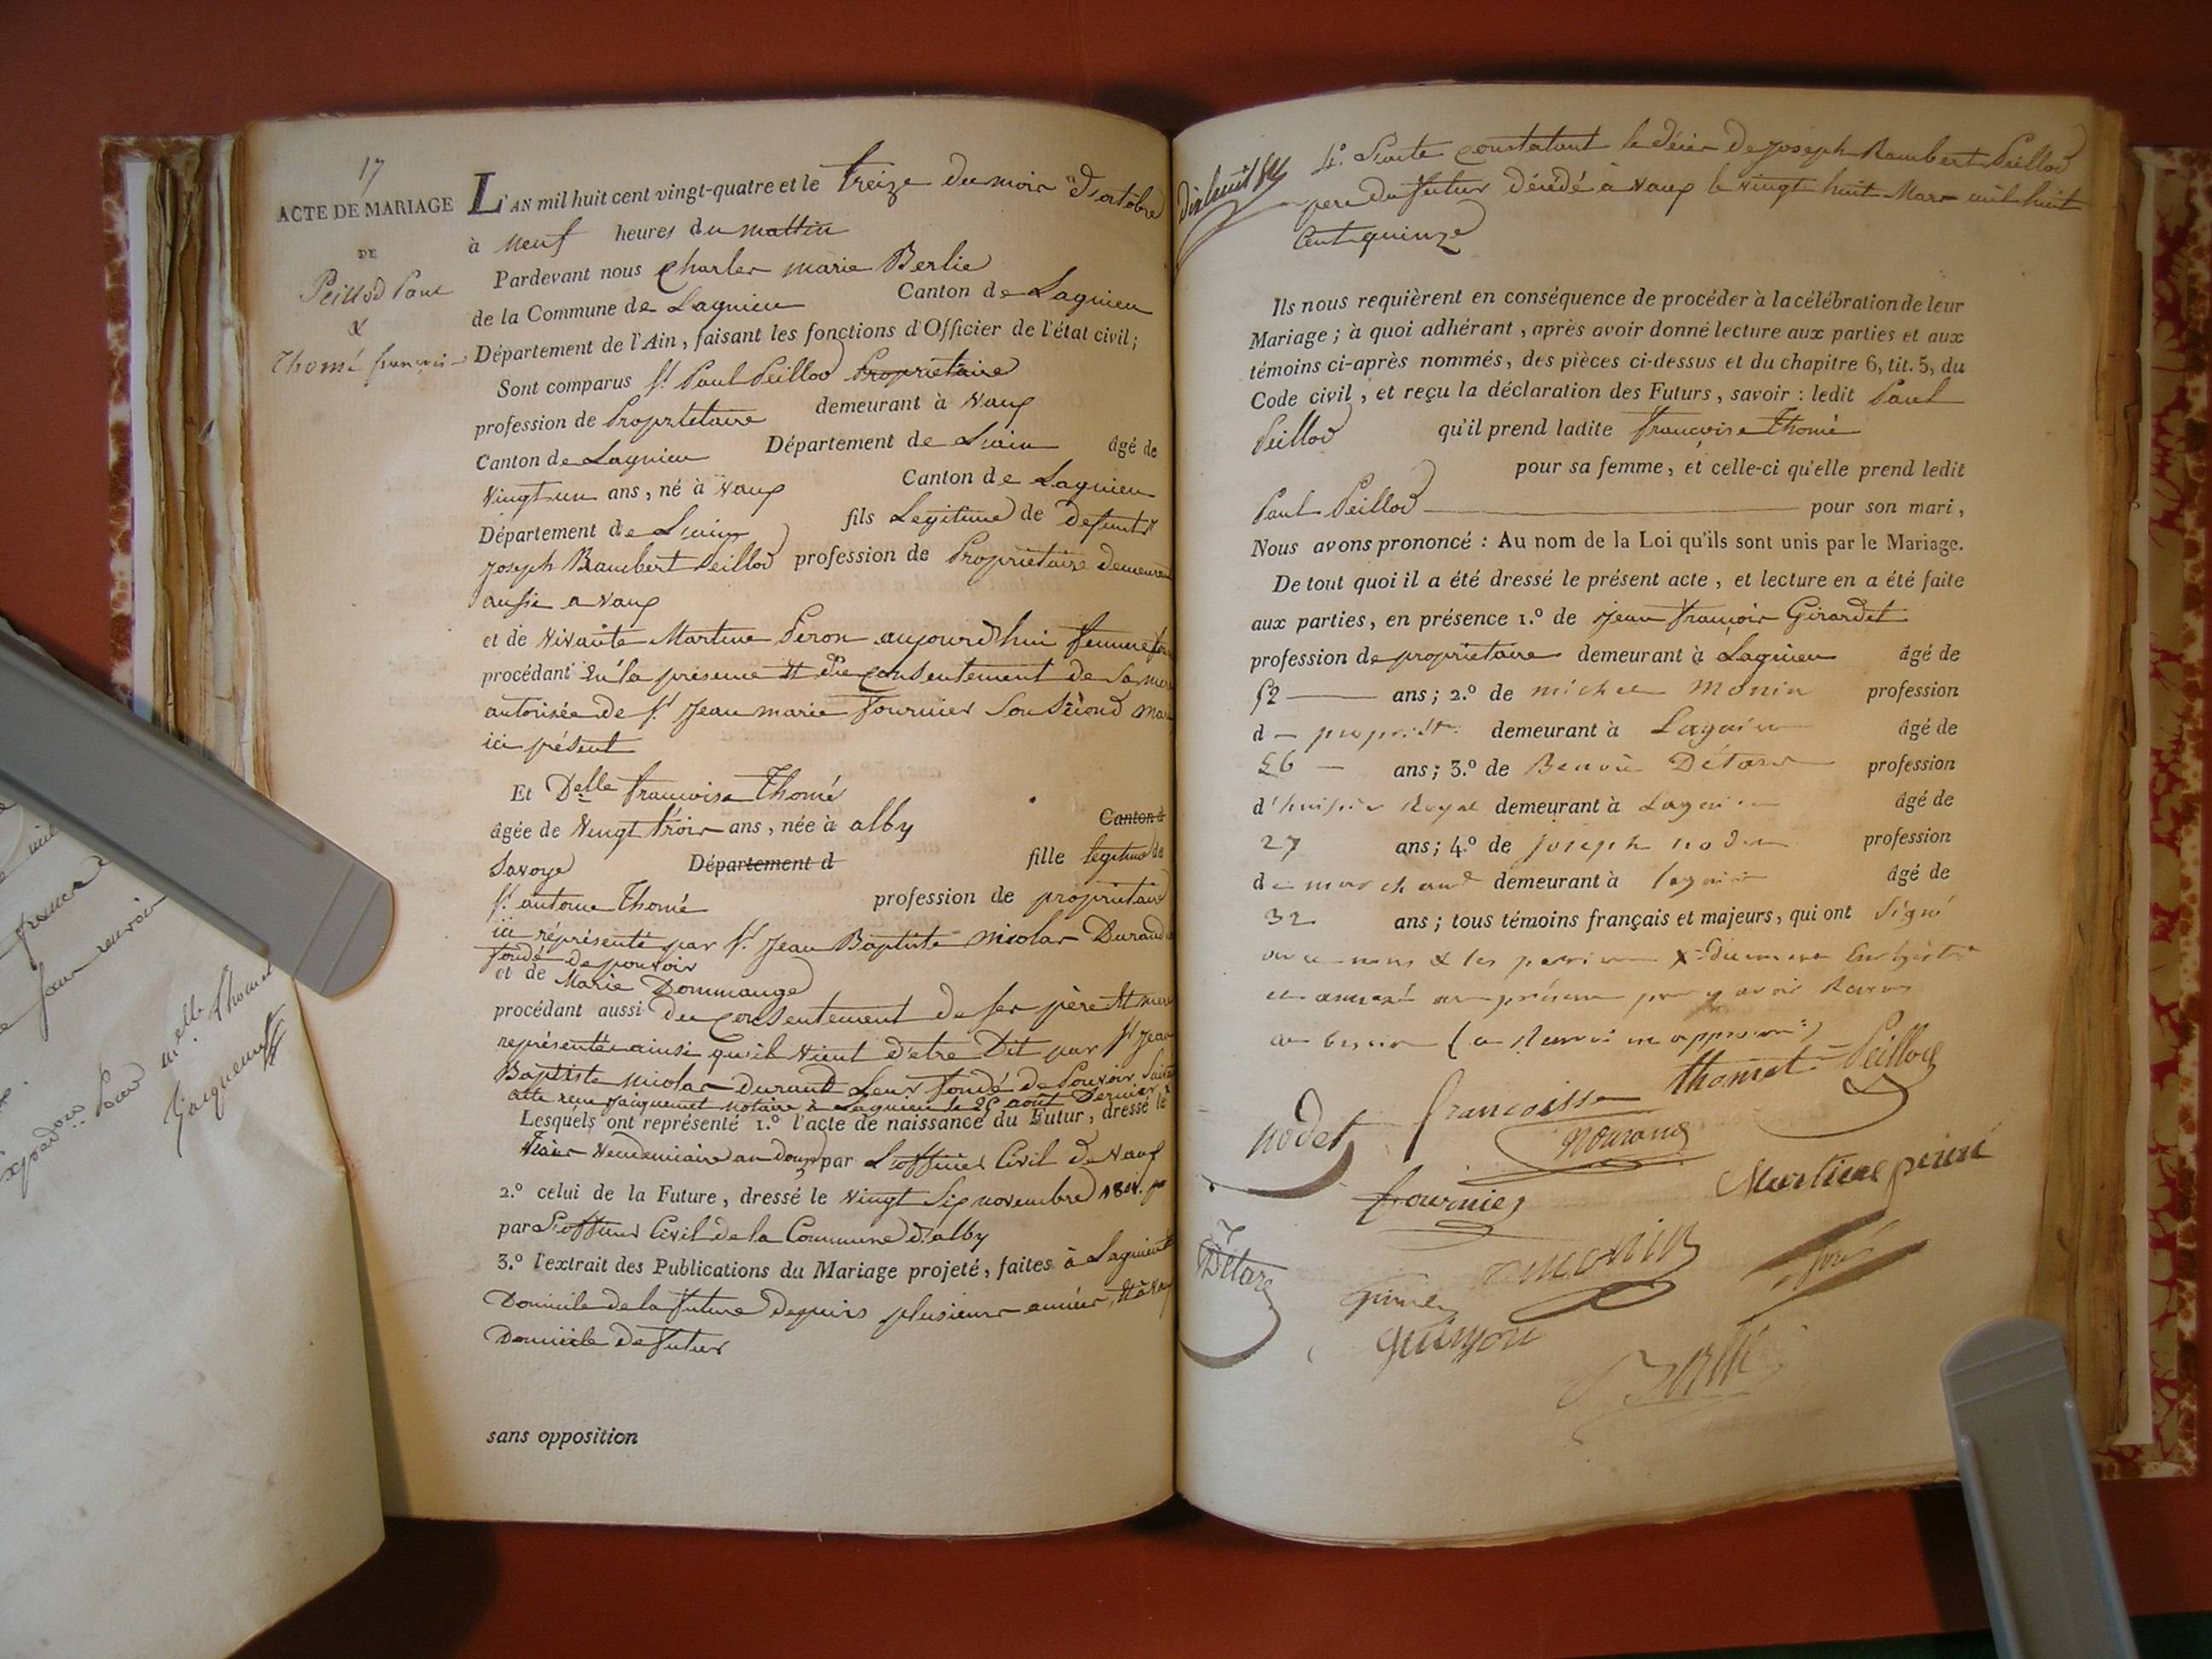 17
ACTE DE MARIAGE
DE
Peillod Paul
&
Thomé françoise
L'AN mil huit cent vingt-quatre et le treize du mois d'octobre
à neuf heures du mattin
Pardevant nous Charles marie Berlie
de la Commune de Lagnieu Canton de Lagnieu
Département de l'Ain, faisant les fonctions d'Officier de l'état civil;
Sont comparus Sr. Paul Peillod Propriétaire
profession de Propriétaire demeurant à Vaux
Canton de Lagnieu Département de L'ain âgé de
Vingt un ans, né à Vaux Canton de Lagnieu
Département de L'ain fils Legitime de defunt
Joseph Rambert Peillod profession de Propriétaire demeurant
aussie a Vaux
et de Vivante Martine Peron aujourdhui femme
procédant En la présence et du consentement de Sa mere
autorisée de Sr. Jean marie fournier Son Sècond mari
ici présent
Et Delle françoise Thomé
âgée de Vingt trois ans, née à alby Canton d
Savoye Département d fille legitime de
Sr. antoine Thomé profession de propriétaire
ici réprésenté par Sr. Jean Baptiste nicolas Durand
fondé de pouvoir
et de Marie Dommange
procédant aussi du consentement de ses père et mere
représentée ainsi qu'il Vient d'etre Dit par Sr Jean
Baptiste nicolas durand Leur fondé de Pouvoir Suivant
acte reçu Jacquemet notaire à Lagnieu le 26 août Dernier
Lesquels ont représenté 1.º l'acte de naissance du Futur, dressé le
Vendemiaire an douze par L'officier Civil de Vaux
2.º celui de la Future, dressé le Vingt Six novembre
par L'officier Civil de la Commune d'alby
3.º l'extrait des Publications du Mariage projeté, faites à Lagnieu
Domicile de la future Depuis plusieurs années, et à Vaux
Domicile de futur
sans opposition
4º. L'acte constatant le décès de Joseph Rambert Peillod
pere du futur Décédé à Vaux le vingt huit Mars mil huit
Cent quinze
Ils nous requièrent en conséquence de procéder à la célébration de leur
Mariage; à quoi adhérant, après avoir donné lecture aux parties et aux
témoins ci-après nommés, des pièces ci-dessus et du chapitre 6, tit. 5, du
Code civil, et reçu la déclaration des Futurs, savoir: ledit Paul
Peillod qu'il prend ladite françoise Thomé
pour sa femme, et celle-ci qu'elle prend ledit
Paul Peillod pour son mari,
Nous avons prononcé: Au nom de la Loi qu'ils sont unis par le Mariage.
De tout quoi il a été dressé le présent acte, et lecture en a été faite
aux parties, en présence 1.º de Jean françois Girardet
profession de proprietaire demeurant à Lagnieu âgé de
52 ans; 2.º de michel Monin profession
d demeurant à Lagnieu âgé de
56 ans; 3.º de Benoit Détard profession
d'huissier Royal demeurant à Lagnieu âgé de
27 ans; 4.º de joseph nodet profession
de marchand demeurant à lagnieu âgé de
32 ans; tous témoins français et majeurs, qui ont Signé
avec nous & les parties
annexé au présent pour y avoir Recours
au besoin
thomet Peillod
nodet francoisse
Martine
fournier
Détard monin
guinson